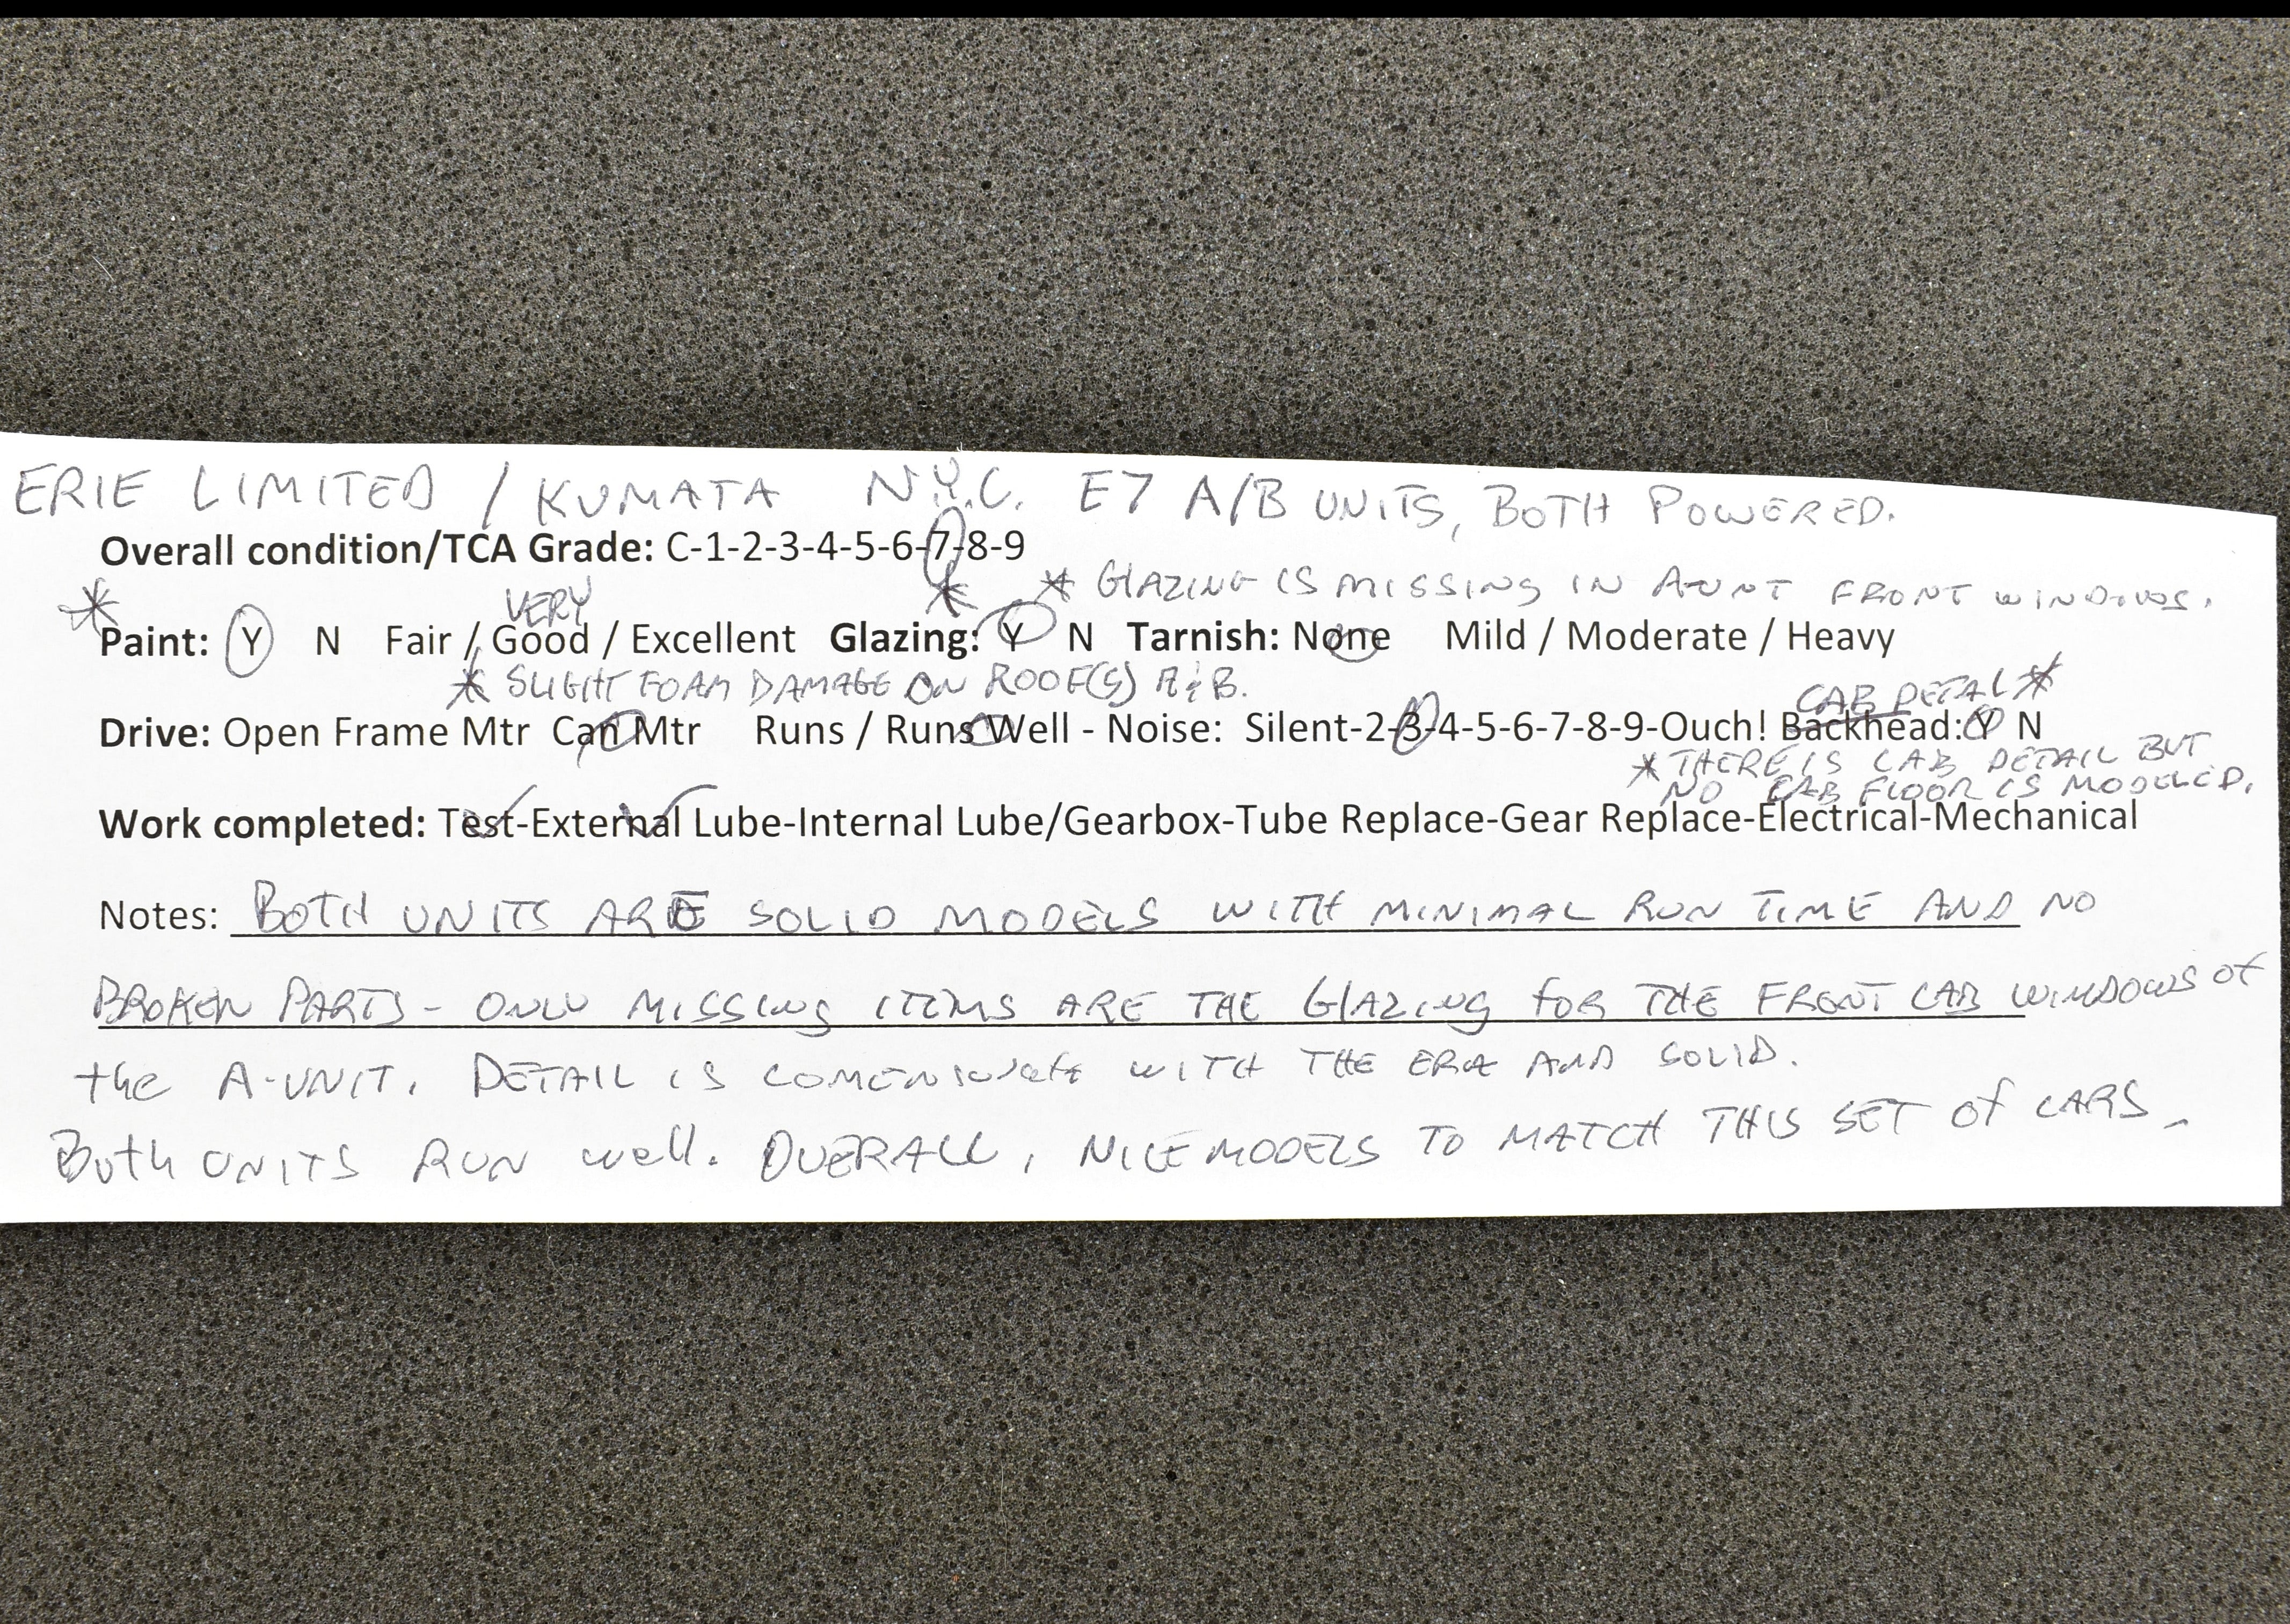 ERIE LIMITED / KUMATA N.Y.C. E7 A/B UNITS, BOTH POWERED.
Overall condition/TCA Grade: C-1-2-3-4-5-6-7-8-9
* GLAZING IS MISSING IN A-UNIT FRONT WINDOWS.
VERY
* Paint: Y N Fair / Good / Excellent Glazing: * Y N Tarnish: None Mild / Moderate / Heavy
* SLIGHT FOAM DAMAGE ON ROOF(S) A & B.
CAB DETAIL *
Drive: Open Frame Mtr Can Mtr Runs / Runs Well - Noise: Silent-2-3-4-5-6-7-8-9-Ouch! Backhead: Y N
* THERE IS CAB DETAIL BUT
NO CAB FLOOR IS MODELED.
Work completed: Test-External Lube-Internal Lube/Gearbox-Tube Replace-Gear Replace-Electrical-Mechanical
Notes: BOTH UNITS ARE SOLID MODELS WITH MINIMAL RUN TIME AND NO
BROKEN PARTS - ONLY MISSING ITEMS ARE THE GLAZING FOR THE FRONT CAB WINDOWS OF
the A-UNIT. DETAIL IS COMENSURATE WITH THE ERA AND SOLID.
Both UNITS RUN well. OVERALL, NICE MODELS TO MATCH THIS SET OF CARS -